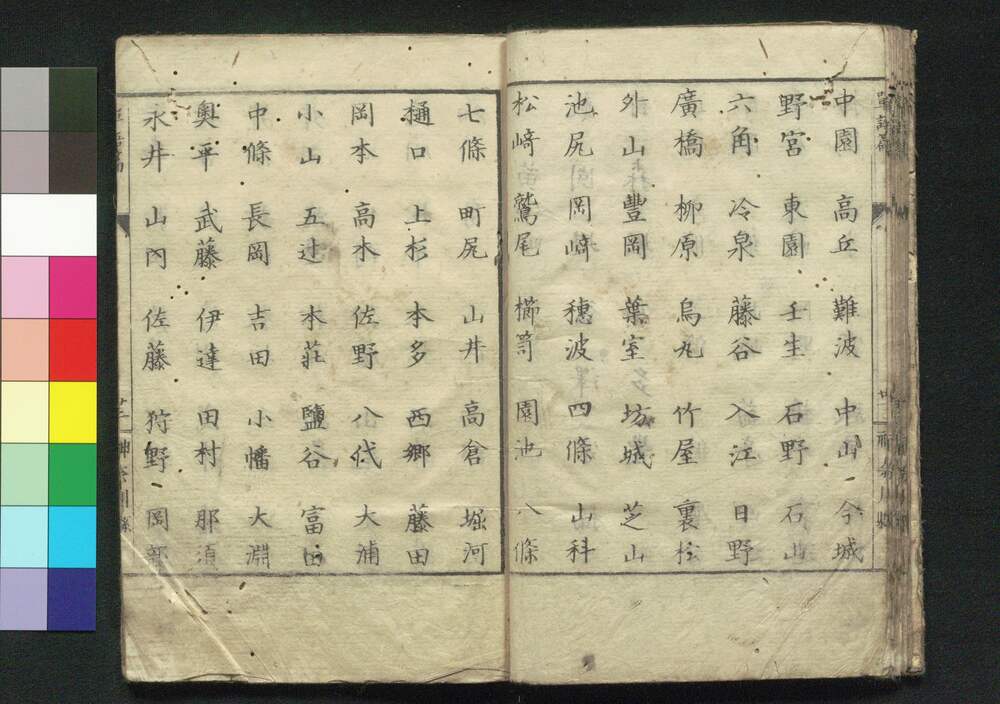 中園 高丘 難波 中山 今城
野宮 東園 壬生 石野 石山
六角 冷泉 藤谷 入江 日野
廣橋 柳原 烏丸 竹屋 裏松
外山 豐岡 葉室 坊城 芝山
池尻 岡﨑 穗波 四條 山科
松﨑 鷲尾 櫛笥 園池 八條
七條 町尻 山井 高倉 堀河
樋口 上杉 本多 西郷 藤田
岡本 高木 佐野 八代 大浦
小山 五辻 本莊 鹽谷 富田
中條 長岡 吉田 小幡 大淵
奧平 武藤 伊達 田村 那須
永井 山內 佐藤 狩野 岡部